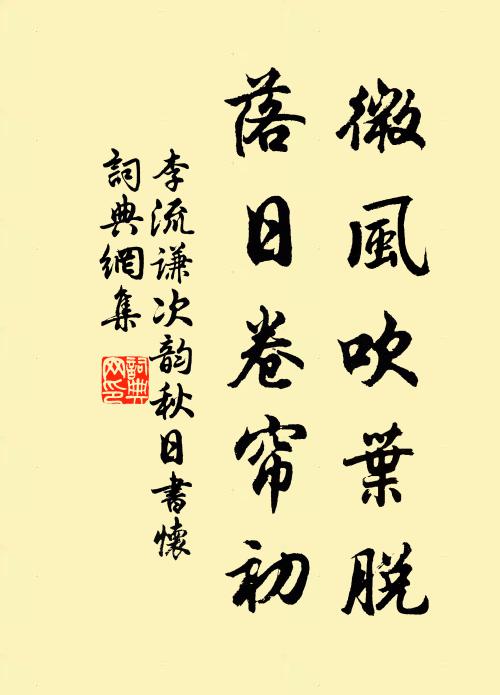 微風吹葉脫
落日卷帘初
李流谦次韵秋日書懷
詞典網集
詞典
网印